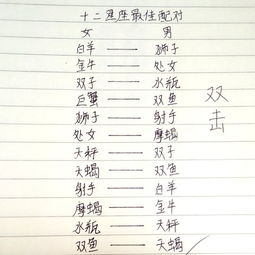 十二星座最佳配对
女 男
白羊 —— 狮子
金牛 —— 处女
双子 —— 水瓶
巨蟹 —— 双鱼
狮子 —— 射手
处女 —— 摩蝎
天秤 —— 双子
天蝎 —— 双鱼
射手 —— 白羊
摩蝎 —— 金牛
水瓶 —— 天秤
双鱼 —— 天蝎
双击